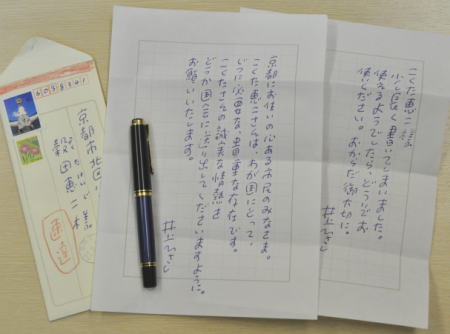 こくた恵二様
少し長く書いてしまいました。
使えるようでしたら、どうぞお
使いください。おからだ御大切に。
井上ひさし
京都にお住いの心ある市民のみなさま。
こくた恵二さんは、わが国にとって、
じつに必要な、貴重な存在です。
こくたさんの誠実な情熱を
どうか国会に送り出してくださいますように。
お願いいたします。
井上ひさし
京都市北区
穀田恵二様
速達